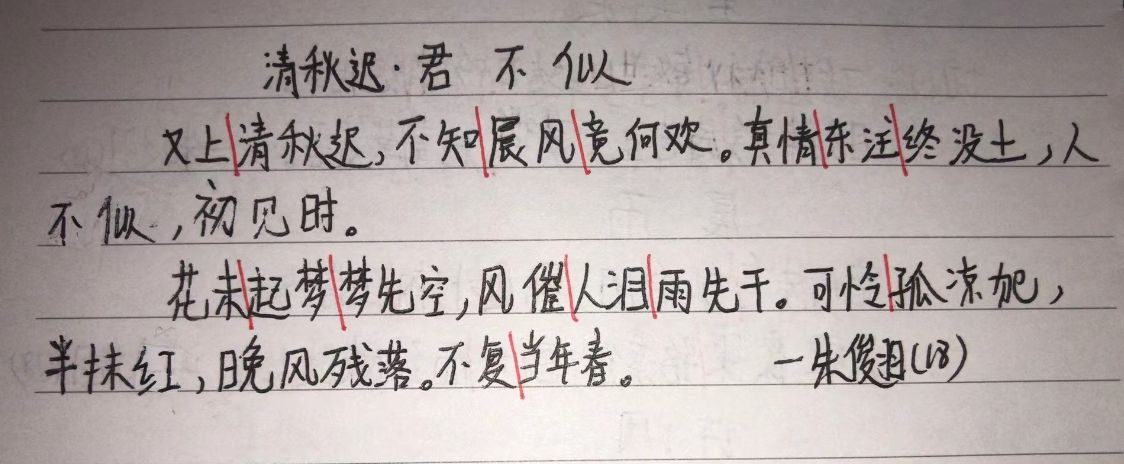 清秋迟·君不似
又上清秋迟,不知晨风竟何欢。真情东注终没土,人
不似,初见时。
花未起梦梦先空,风催人泪雨先干。可怜孤凉加,
半抹红,晚风残落。不复当年春。 一朱俊羽(18)